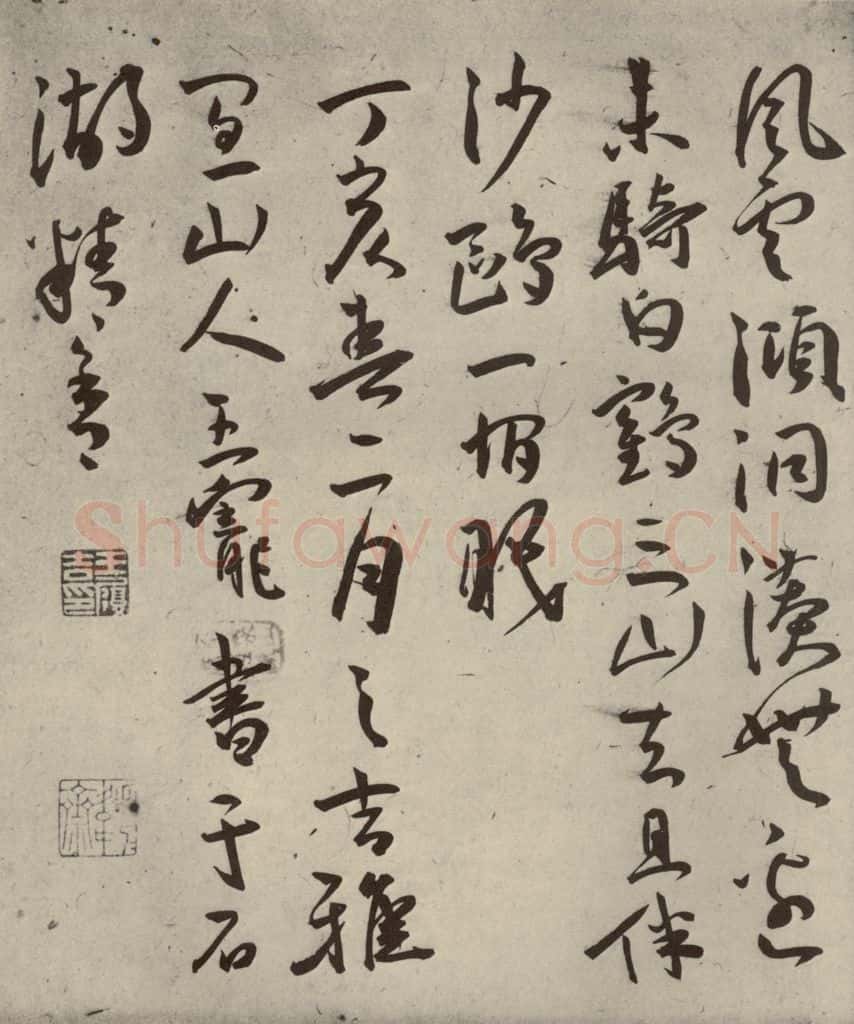 風雲澒洞無邊
未騎白鶴三山去且伴
沙鷗一眠
丁亥春二月之吉雅
宜山人王寵書于石
湖精舍
王履吉印
Shufawang.CN